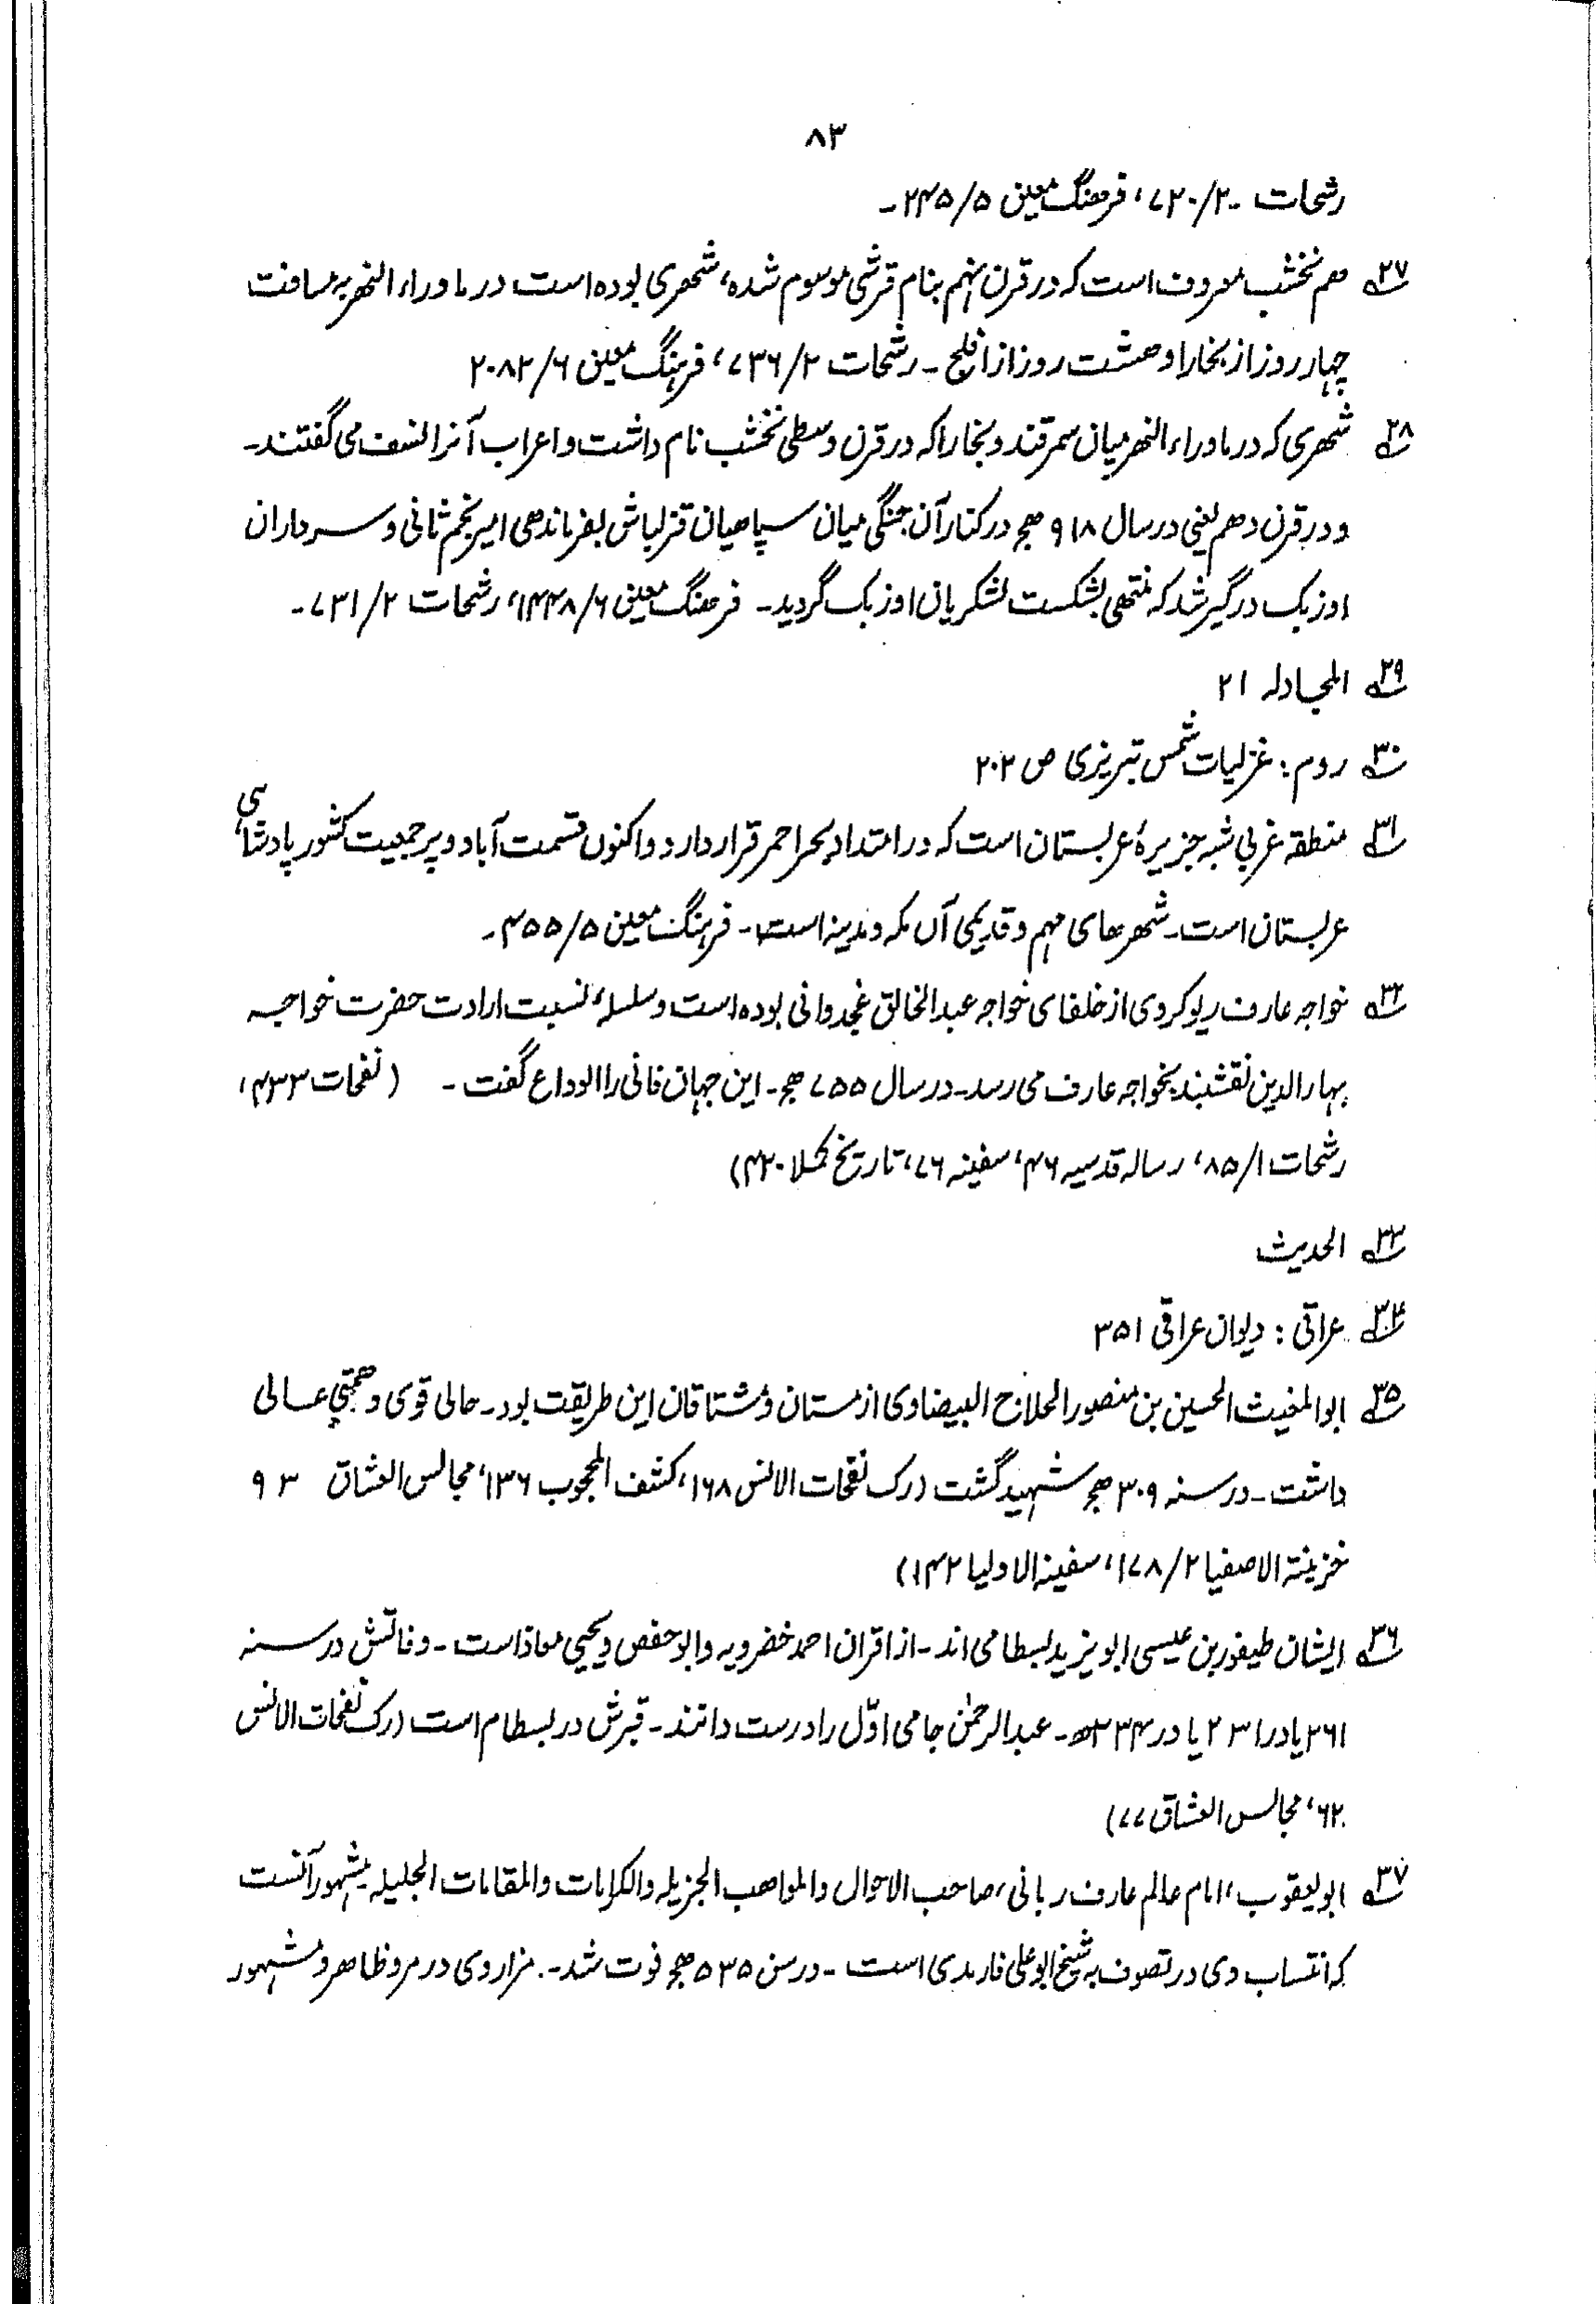 ۸۳
رشحات ـ ۷۲۰/۲، فرهنگ معین ۲۴۵/۵ ـ
۲۷ هم نخشب معروف است که در قرن نهم بنام قرشی موسوم شده، شهری بوده است در ماوراء النهر به مسافت
چهار روز از بخارا و هشت روز از از بلخ ـ رشحات ۷۳۶/۲، فرہنگ معین ۲۰۸۲/۶
۲۸ شهری که در ماوراء النهر میان سمرقند و بخارا که در قرن وسطی نخشب نام داشت و اعراب آنرا نسف می گفتند ـ
و در قرن دهم یعنی در سال ۹۱۸ هج در کنار آن جنگی میان سپاهیان قزلباش بفرماندهی امیر نجم ثانی و سرداران
اوزبک درگیر شد که منتهی بشکست لشکریان اوزبک گردید ـ فرهنگ معین ۱۴۴۸/۶، رشحات ۷۳۱/۲ ـ
۲۹ المجادله ۲۱
۳۰ روم : غزلیات شمس تبریزی ص ۲۰۲
۳۱ منطقه غربی شبه جزیرهٔ عربستان است که در امتداد بحر احمر قرار دارد و اکنون قسمت آباد و پر جمعیت کشور پادشاهی
عربستان است ـ شهرهای مهم و قدیمی آں مکه و مدینه است ـ فرہنگ معین ۴۵۵/۵ ـ
۳۲ خواجه عارف ریوکروی از خلفای خواجه عبد الخالق غجدوانی بوده است و سلسلهٔ نسبت ارادت حضرت خواجه
بہاء الدین نقشبند بخواجه عارف می رسد ـ در سال ۷۵۵ هج ـ این جهان فانی را الوداع گفت ـ (نفحات ۴۳۳،
رشحات ۸۵/۱، رساله قدسیه ۴۶، سفینه ۷۶، تاریخ کملا ۴۲۰)
۳۳ الحدیث
۳۴ عراقی : دیوان عراقی ۳۵۱
۳۵ ابو المغیث الحسین بن منصور الحلاج البیضاوی از مستان و مشتاقان این طریقت بود ـ حالی قوی و همتی عالی
داشت ـ در سنه ۳۰۹ هج شهید گشت (رک نفحات الانس ۱۶۸، کشف المحجوب ۱۳۶، مجالس العشاق ۹۳
خزینة الاصفیا ۱۷۸/۲، سفینة الاولیا ۱۴۲)
۳۶ ایشان طیفور بن عیسی ابو یزید بسطامی اند ـ از اقران احمد خضرویه و ابو حفص و یحیی معاذ است ـ وفاتش در سنه
۲۶۱ یا در ۲۳۱ یا در ۲۳۴ھ ـ عبد الرحمٰن جامی اوّل را درست دانند ـ قبرش در بسطام است (رک نفحات الانس
۶۲، مجالس العشاق ۷۷)
۳۷ ابو یعقوب، امام عالم عارف ربانی، صاحب الاحوال والمواهب الجزیله والکرامات والمقامات الجلیله مشهور آنست
که انتساب وی در تصوف به شیخ ابو علی فارمدی است ـ در سن ۵۳۵ هج فوت شد ـ مزار وی در مرو ظاهر و مشہور